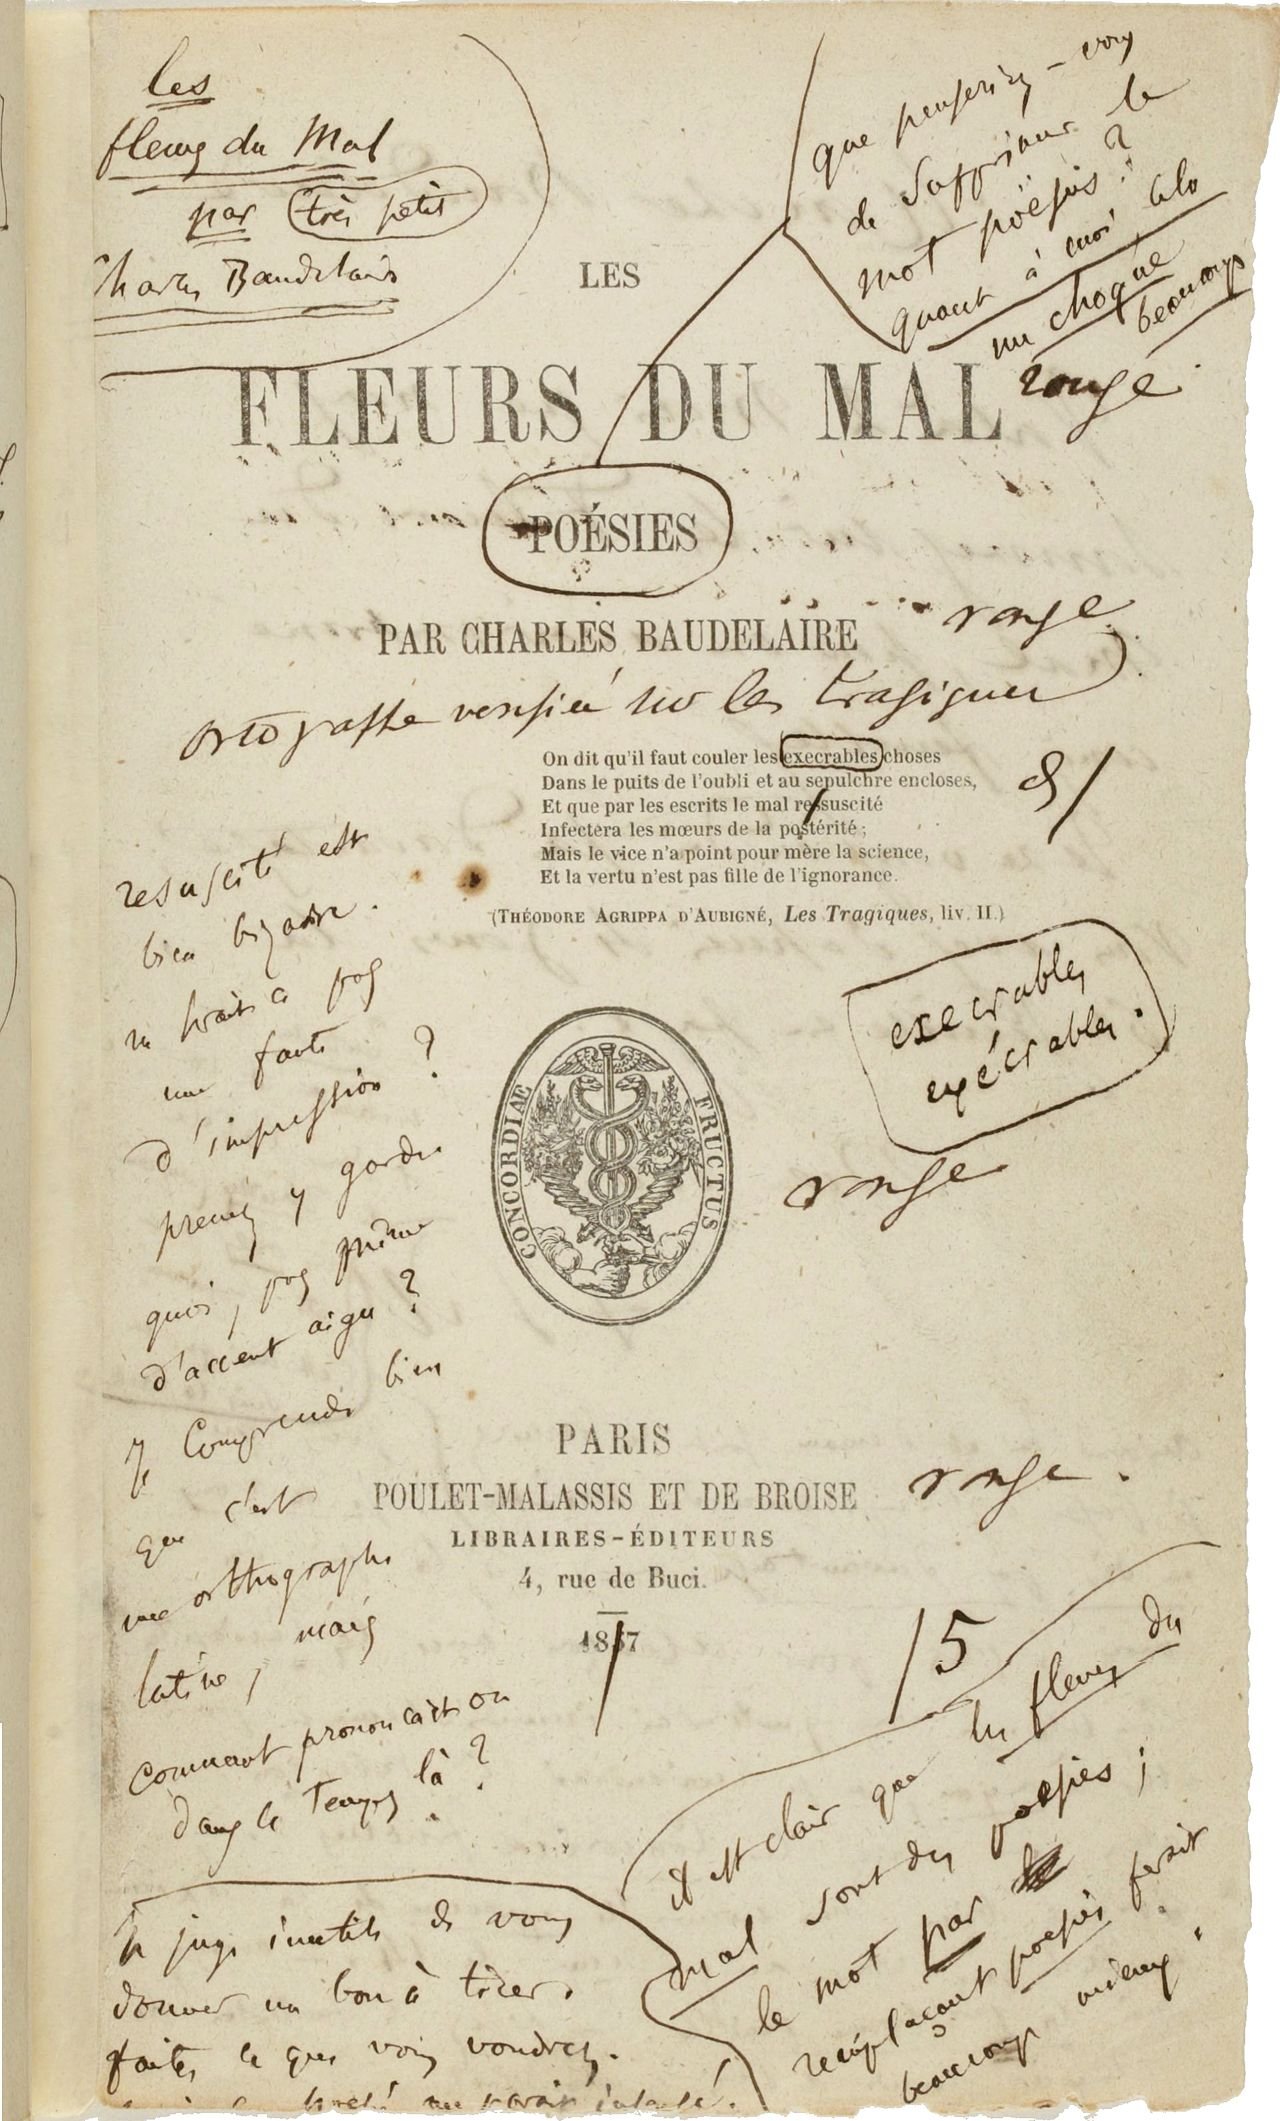 les
fleurs du Mal
par très petit
Charles Baudelaire
que penseriez-vous
de supprimer le
mot poësies ?
quant à moi, cela
me choque
beaucoup
rouge.
LES
FLEURS DU MAL
POÉSIES
PAR CHARLES BAUDELAIRE
rouge
ortografhe verifiée sur les tragiques
On dit qu'il faut couler les execrables choses
Dans le puits de l'oubli et au sepulchre encloses,
Et que par les escrits le mal ressuscité
Infectera les mœurs de la postérité ;
Mais le vice n'a point pour mère la science,
Et la vertu n'est pas fille de l'ignorance.
(THÉODORE AGRIPPA D'AUBIGNÉ, Les Tragiques, liv. II.)
resuscité est
bien bizarre.
ne serait-ce pas
une faute
d'impression ?
prenez y garde.
quoi, pas même
d'accent aigu ?
Je comprends bien
que c'est
une orthographe
latine, mais
comment prononçait-on
dans ce temps là ?
execrables
exécrables.
rouge
CONCORDIAE FRUCTUS
PARIS
POULET-MALASSIS ET DE BROISE
rouge.
LIBRAIRES-ÉDITEURS
4, rue de Buci.
1857
/5
il est clair que les fleurs du
mal sont des poesies ;
le mot par
remplaçant poesies ferait
beaucoup mieux.
Je juge inutile de vous
donner un bon à tirer.
faites ce que vous voudrez.